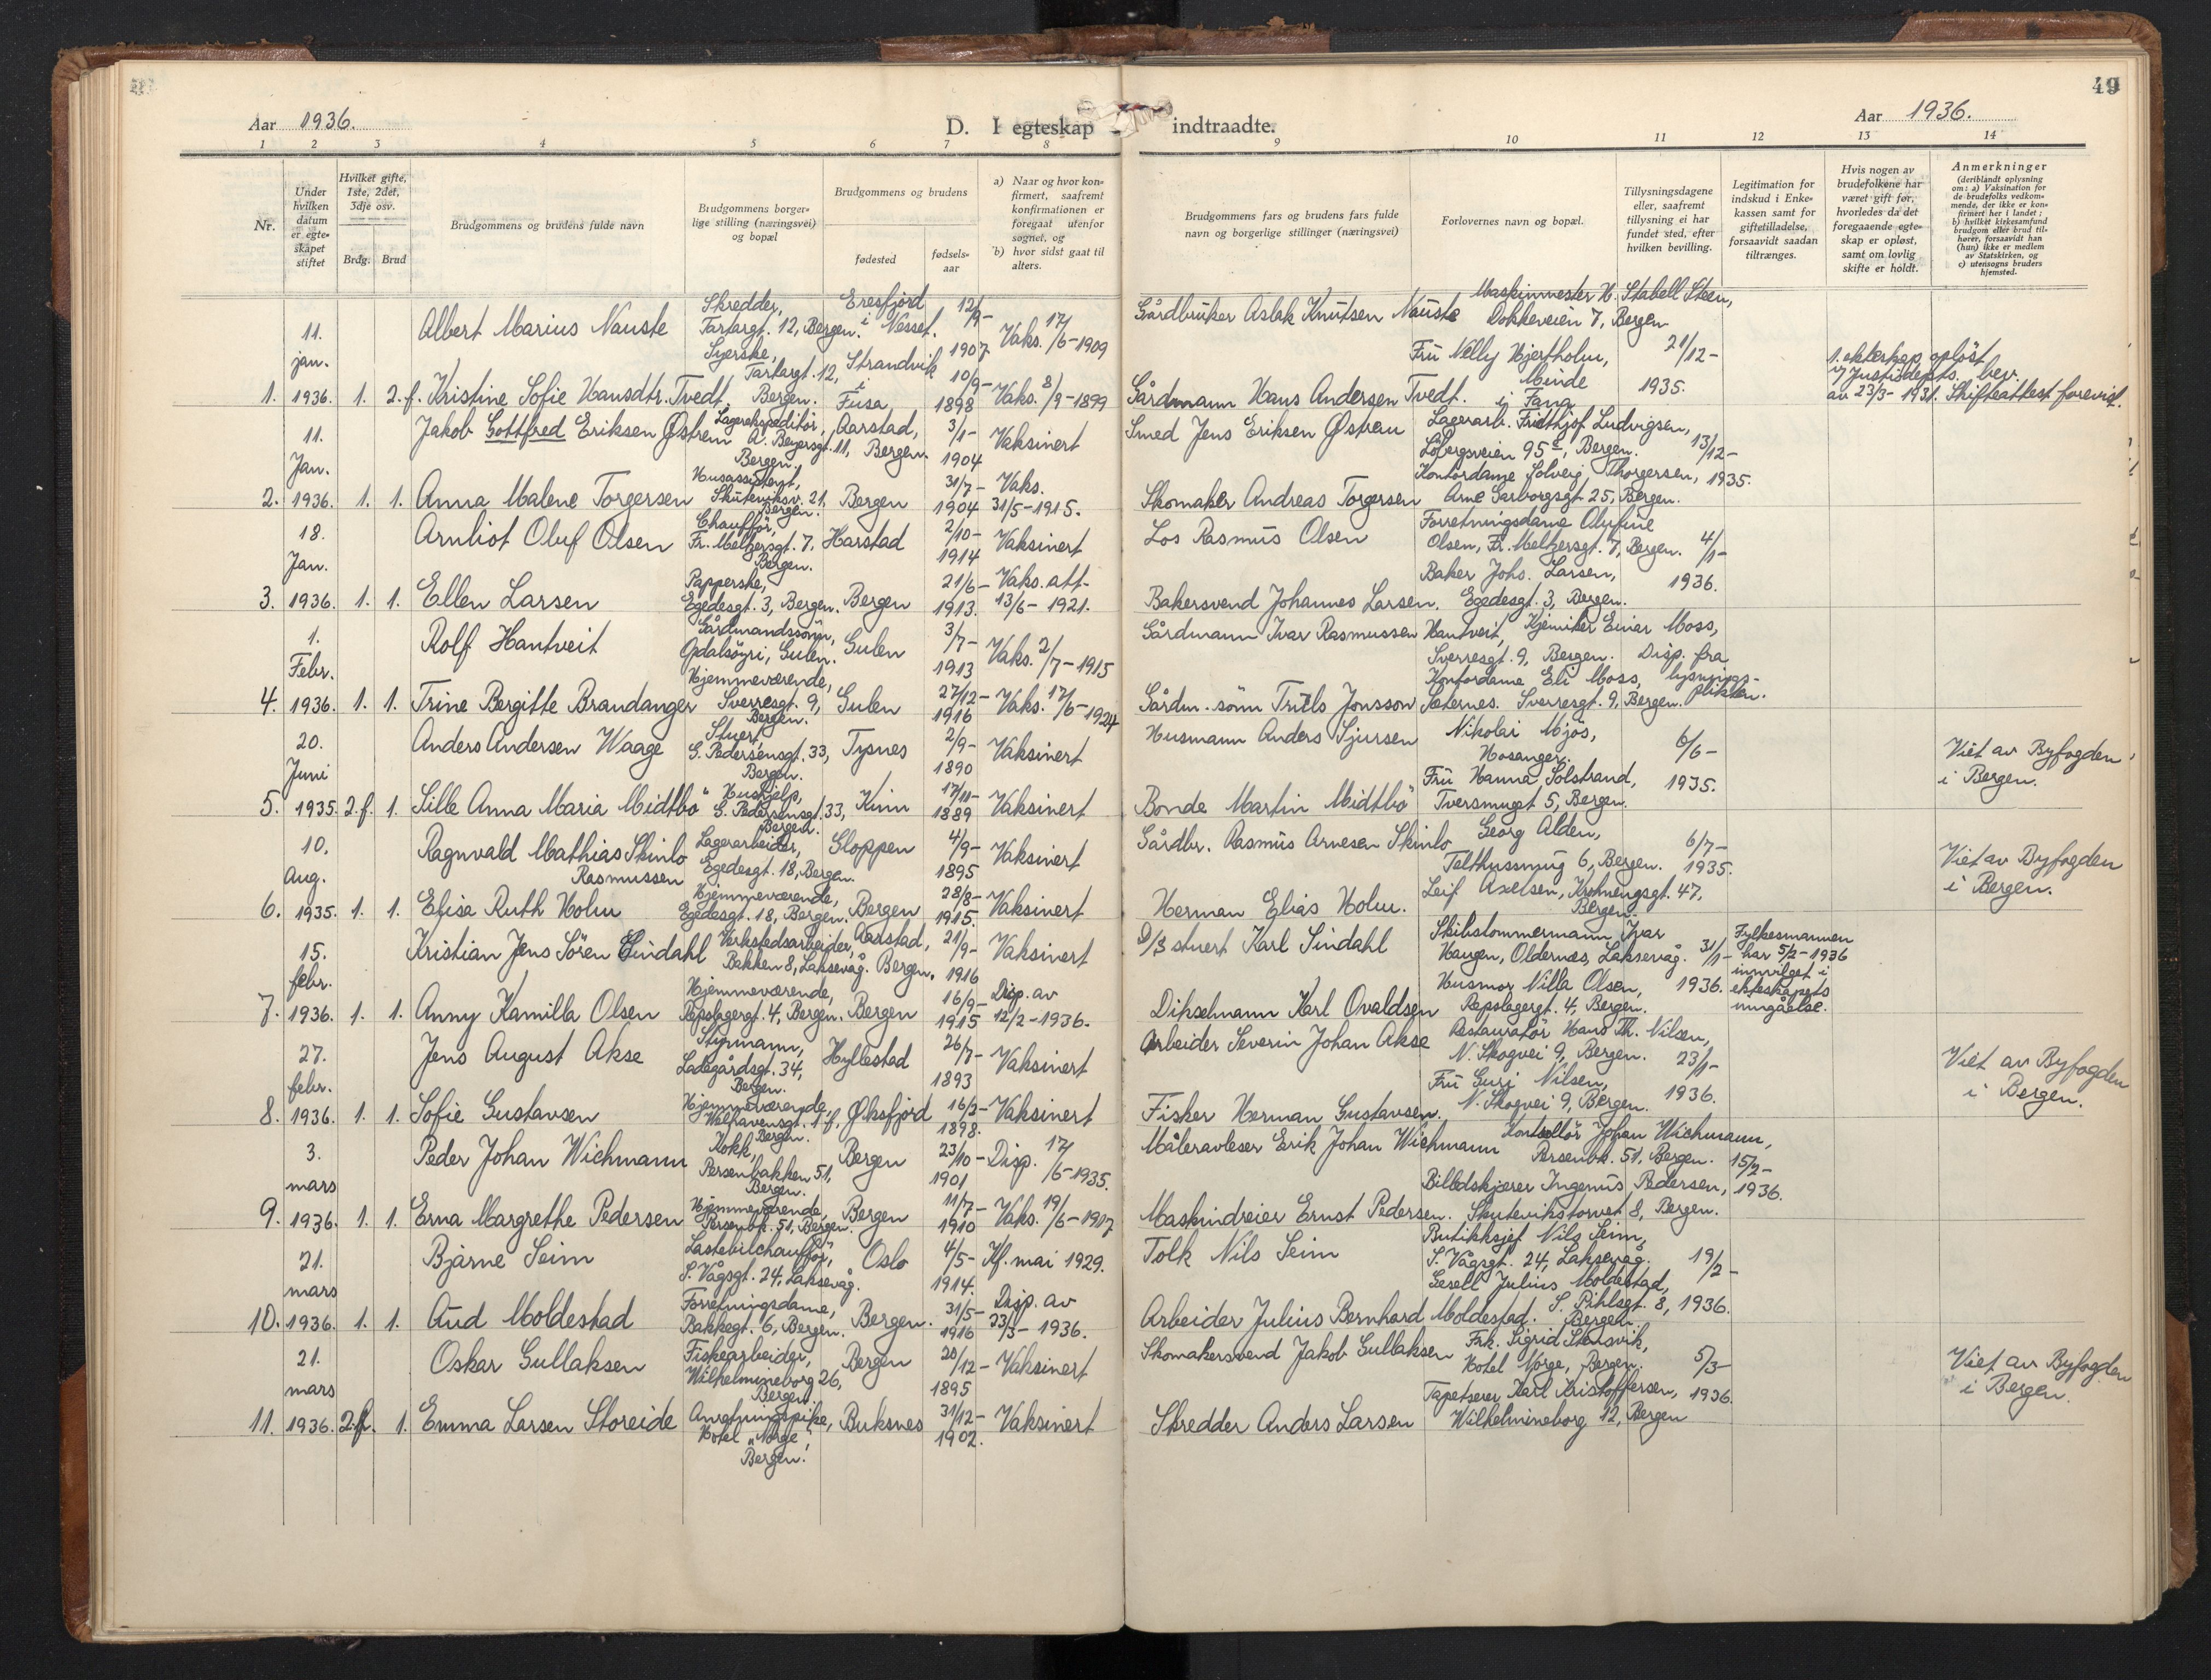 49
Aar 1936.
D. I egteskap indtraadte.
Aar 1936.
1 2 3 4 5 6 7 8 9 10 11 12 13 14
Nr.
Under hvilken datum er egte-skapet stiftet
Hvilket gifte, 1ste, 2det, 3dje osv.
Brdg. Brud
Brudgommens og brudens fulde navn
Brudgommens borger-lige stilling (næringsvei) og bopæl
Brudgommens og brudens
fødested
fødsels-aar
a) Naar og hvor kon-firmert, saafremt konfirmationen er foregaat utenfor sognet, og
b) hvor sidst gaat til alters.
Brudgommens fars og brudens fars fulde navn og borgerlige stillinger (næringsvei)
Forlovernes navn og bopæl.
Tillysningsdagene eller, saafremt tillysning ei har fundet sted, efter hvilken bevilling.
Legitimation for indskud i Enke-kassen samt for giftetilladelse, forsaavidt saadan tiltrænges.
Hvis nogen av brudefolkene har været gift før, hvorledes da det foregaaende egte-skap er opløst, samt om lovlig skifte er holdt.
Anmerkninger
(deriblandt oplysning om: a) Vaksination for de brudefolks vedkom-mende, der ikke er kon-firmert her i landet; b) hvilket kirkesamfund brudgom eller brud til-hører, forsaavidt han (hun) ikke er medlem av Statskirken, og c) utensogns bruders hjemsted.
1. 11. jan. 1936. 1. 2.f.
Albert Marius Nauste
Skredder, Tartargt. 12, Bergen.
Eresfjord i Nesset.
12/9- 1907
Vaks. 17/6-1909
Gårdbruker Aslak Knutsen Nauste
Maskinmester H. Stabell Steen, Dokkeveien 7, Bergen
21/12- 1935.
Kristine Sofie Hansdtr. Tvedt.
Syerske, Tartargt. 12, Bergen.
Strandvik i Fusa
10/9- 1898
Vaks. 8/9-1899
Gårdmann Hans Andersen Tvedt.
Fru Nelly Hjertholm, Minde i Fana
1. ekteskap opløst v/ Justisdepts. bev. av 23/3-1931. Skifteattest forevist.
2. 11. Jan. 1936. 1. 1.
Jakob Gottfred Eriksen Østrem
Lagerekspeditør, A. Beyersgt. 11, Bergen.
Aarstad, Bergen.
3/1- 1904
Vaksinert
Smed Jens Eriksen Østrem
Lagerarb. Fridthjof Ludvigsen, Løbergsveien 95, Bergen.
13/12- 1935.
Anna Malene Torgersen
Husassistent, Skuteviksv. 21, Bergen.
Bergen
31/7- 1904
Vaks. 31/5-1915.
Skomaker Andreas Torgersen
Kontordame Solveig Thorgersen, Arne Garborgsgt. 25, Bergen.
3. 18. Jan. 1936. 1. 1.
Arnliot Oluf Olsen
Chauffør, Fr. Meltzersgt. 7, Bergen.
Harstad
2/10- 1914
Vaksinert
Los Rasmus Olsen
Forretningsdame Olufine Olsen, Fr. Meltzersgt. 7, Bergen.
4/1- 1936.
Ellen Larsen
Papperske, Egedesgt. 3, Bergen.
Bergen
21/6- 1913.
Vaks. att. 13/6-1921.
Bakersvend Johannes Larsen.
Baker Johs. Larsen, Egedesgt. 3, Bergen.
4. 1. Febr. 1936. 1. 1.
Rolf Hantveit
Gårdmandssønn, Opdalsøyri, Gulen.
Gulen
3/7- 1913
Vaks. 2/7-1915
Gårdmann Ivar Rasmussen Hantveit
Kjemiker Einar Moss, Sverresgt. 9, Bergen.
Disp. fra lysnings-plikten.
Trine Bergitte Brandanger
Hjemmeværende, Sverresgt. 9, Bergen.
Gulen
27/12- 1916
Vaks. 17/6-1924
Gårdm.-sønn Truls Jonsson Sæternes.
Kontordame Eli Moss, Sverresgt. 9, Bergen.
5. 20. Juni 1935. 2.f. 1.
Anders Andersen Waage
Stuert, G. Pedersensgt. 33, Bergen.
Tysnes
2/9- 1890
Vaksinert
Husmann Anders Sjursen
Nikolai Mjøs, Hosanger.
6/6- 1935.
Viet av Byfogden i Bergen.
Sille Anna Maria Midtbø
Hushjelp, G. Pedersensgt. 33, Bergen.
Kinn
17/11- 1889
Vaksinert
Bonde Martin Midtbø
Fru Hanna Solstrand, Tversmuget 5, Bergen.
6. 10. Aug. 1935. 1. 1.
Ragnvald Mathias Skinlo Rasmussen
Lagerarbeider, Egedesgt. 18, Bergen.
Gloppen
4/9- 1895
Vaksinert
Gårdbr. Rasmus Arnesen Skinlo
Georg Alden, Telthussmug 6, Bergen.
6/7- 1935.
Viet av Byfogden i Bergen.
Elisa Ruth Holm
Hjemmeværende, Egedesgt. 18, Bergen.
Bergen
28/8- 1915.
Vaksinert
Herman Elias Holm.
Leif Axelsen, Krohnengsgt. 47, Bergen.
7. 15. febr. 1936. 1. 1.
Kristian Jens Sören Sindahl
Verkstedsarbeider, Bakken 8, Laksevåg.
Aarstad, Bergen.
21/9- 1916
Vaksinert
D/S stuert Karl Sindahl
Skibstømmermann Ivar Haugen, Oldernes, Laksevåg.
31/1- 1936.
Fylkesmannen har 5/2-1936 innvilget i ekteskapets inngåelse.
Anny Kamilla Olsen
Hjemmeværende, Repslagergt. 4, Bergen.
Bergen
16/9- 1915
Disp. av 12/2-1936.
Dikselmann Karl Ovaldsen
Husmor Nilla Olsen, Repslagergt. 4, Bergen.
8. 27. febr. 1936. 1. 1.
Jens August Akse
Styrmann, Ladegårdsgt. 34, Bergen.
Hyllestad
26/7- 1893
Vaksinert
Arbeider Severin Johan Akse
Restauratør Hans Th. Nilsen, N. Skogvei 9, Bergen.
23/1- 1936.
Viet av Byfogden i Bergen.
Sofie Gustavsen
Hjemmeværende, Welhavensgt. 1 f, Bergen.
Øksfjord
16/2- 1898.
Vaksinert
Fisker Herman Gustavsen.
Fru Guri Nilsen, N. Skogvei 9, Bergen.
9. 3. mars 1936. 1. 1.
Peder Johan Wichmann
Kokk, Persenbakken 51, Bergen.
Bergen
23/10- 1901
Disp. 17/6-1935.
Måleravleser Erik Johan Wichmann
Kontrollør Johan Wichmann, Persenbk. 51, Bergen.
15/2- 1936.
Erna Margrethe Pedersen
Hjemmeværende, Persenbk. 51, Bergen.
Bergen
11/7- 1910
Vaks. 19/6-1917
Maskindreier Ernst Pedersen.
Billedskjærer Ingenius Pedersen, Skutevikstorvet 8, Bergen.
10. 21. mars 1936. 1. 1.
Bjarne Seim
Lastebilchauffør, S. Vågsgt. 24, Laksevåg.
Oslo
4/5- 1914.
Kf. mai 1929.
Tolk Nils Seim
Butikksjef Nils Seim, S. Vågsgt. 24, Laksevåg.
19/2- 1936.
Aud Moldestad
Forretningsdame, Bakkegt. 6, Bergen.
Bergen.
31/5- 1916
Disp. av 23/3-1936.
Arbeider Julius Bernhard Moldestad.
Gesell Julius Moldestad, S. Pihlsgt. 8, Bergen.
11. 21. mars 1936. 2.f. 1.
Oskar Gullaksen
Fiskearbeider, Wilhelmineborg 26, Bergen
Bergen
20/12- 1895
Vaksinert
Skomakersvend Jakob Gullaksen
Frk. Sigrid Stensvik, Hotel Norge, Bergen.
5/3- 1936.
Viet av Byfogden i Bergen.
Emma Larsen Storeide
Anretningspike, Hotel "Norge", Bergen.
Buksnes
31/12- 1902.
Vaksinert
Skredder Anders Larsen
Tapetserer Karl Kristoffersen, Wilhelmineborg 12, Bergen